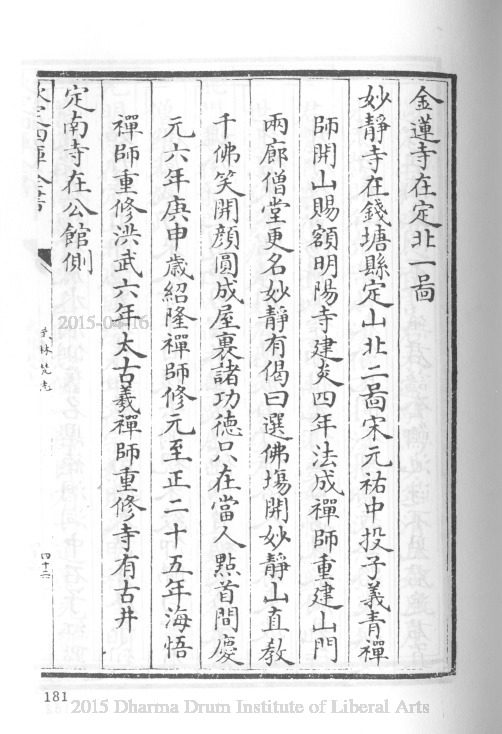 金蓮寺在定北一啚
妙靜寺在錢塘縣定山北二啚宋元祐中投子義青禪
師開山賜額明陽寺建炎四年法成禪師重建山門
兩廊僧堂更名妙靜有偈曰選佛塲開妙靜山直教
千佛笑開顔圓成屋裏諸功德只在當人㸃首間慶
元六年庚申歲紹隆禪師修元至正二十五年海悟
禪師重修洪武六年太古羲禪師重修寺有古井
定南寺在公館側
欽定四庫全書
武林梵志
四十六
2015-04-16
181
2015 Dharma Drum Institute of Liberal Arts